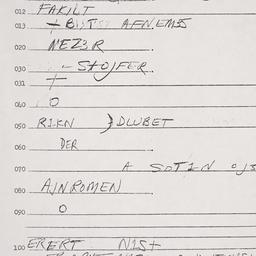 012 FAKILT
013 + BIST AFNEMS
020 MEZ3R
030 - STOJFER
031 +
040 O
050 RIKN } DLUBET
060 DER
070 A SOTIN OJS
080 AJNROMEN
090 O
100 ERERT NIST